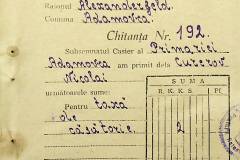 Raionul Alexanderfeld.
Comuna Adamovca.
Chitanța Nr. 192.
Subsemnatul Casier al Primariei
Adamovca am primit dela Cuzerov
Nicolai
următoarele sume:
SUMA
R. K. K. S. Pf.
Pentru taxă
de
căsătorie.
2